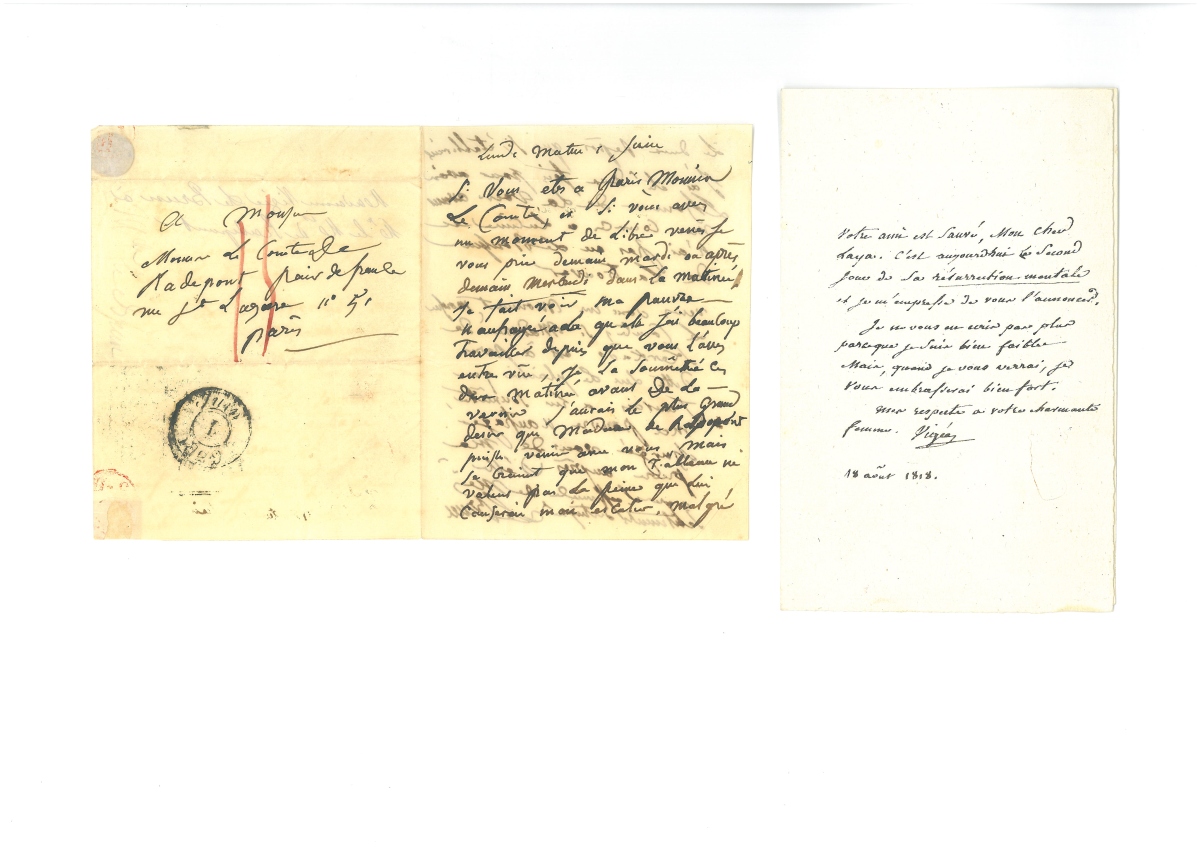 A Monsieur
Monsieur Le Comte de
Radepont pair de france
rue St Lazare n° 51
paris
Lundi matin
Si Vous ets a paris Monsieur
Le Comte, et si vous aves
un moment de Libre venés je
vous prie demain mardi ou après
demain Mercredi dans la matinée
Je fait voir ma pauvre
Naufragée a la quelle jai beaucoup
travailler depuis que vous l'aves
entre vüe, je la soumettré ces
deux matiné avant de la
vernir jaurais le plus grand
desir que Madame de Radepont
puisse venir avec vous Mais
je craint que mon Tableau ne
vailles pas la peine que lui
Causerai mon escalier, malgré
Votre ami est Sauvé, Mon cher
Laya. C'est aujourd'hui le second
jour de sa résurrection mentale
et je m'empresse de vous l'annoncer.
Je ne vous en écris pas plus
parceque je suis bien faible
Mais, quand je vous verrai, je
vous embrasserai bien fort.
Mes respects à votre charmante
femme. Vigée
18 août 1818.